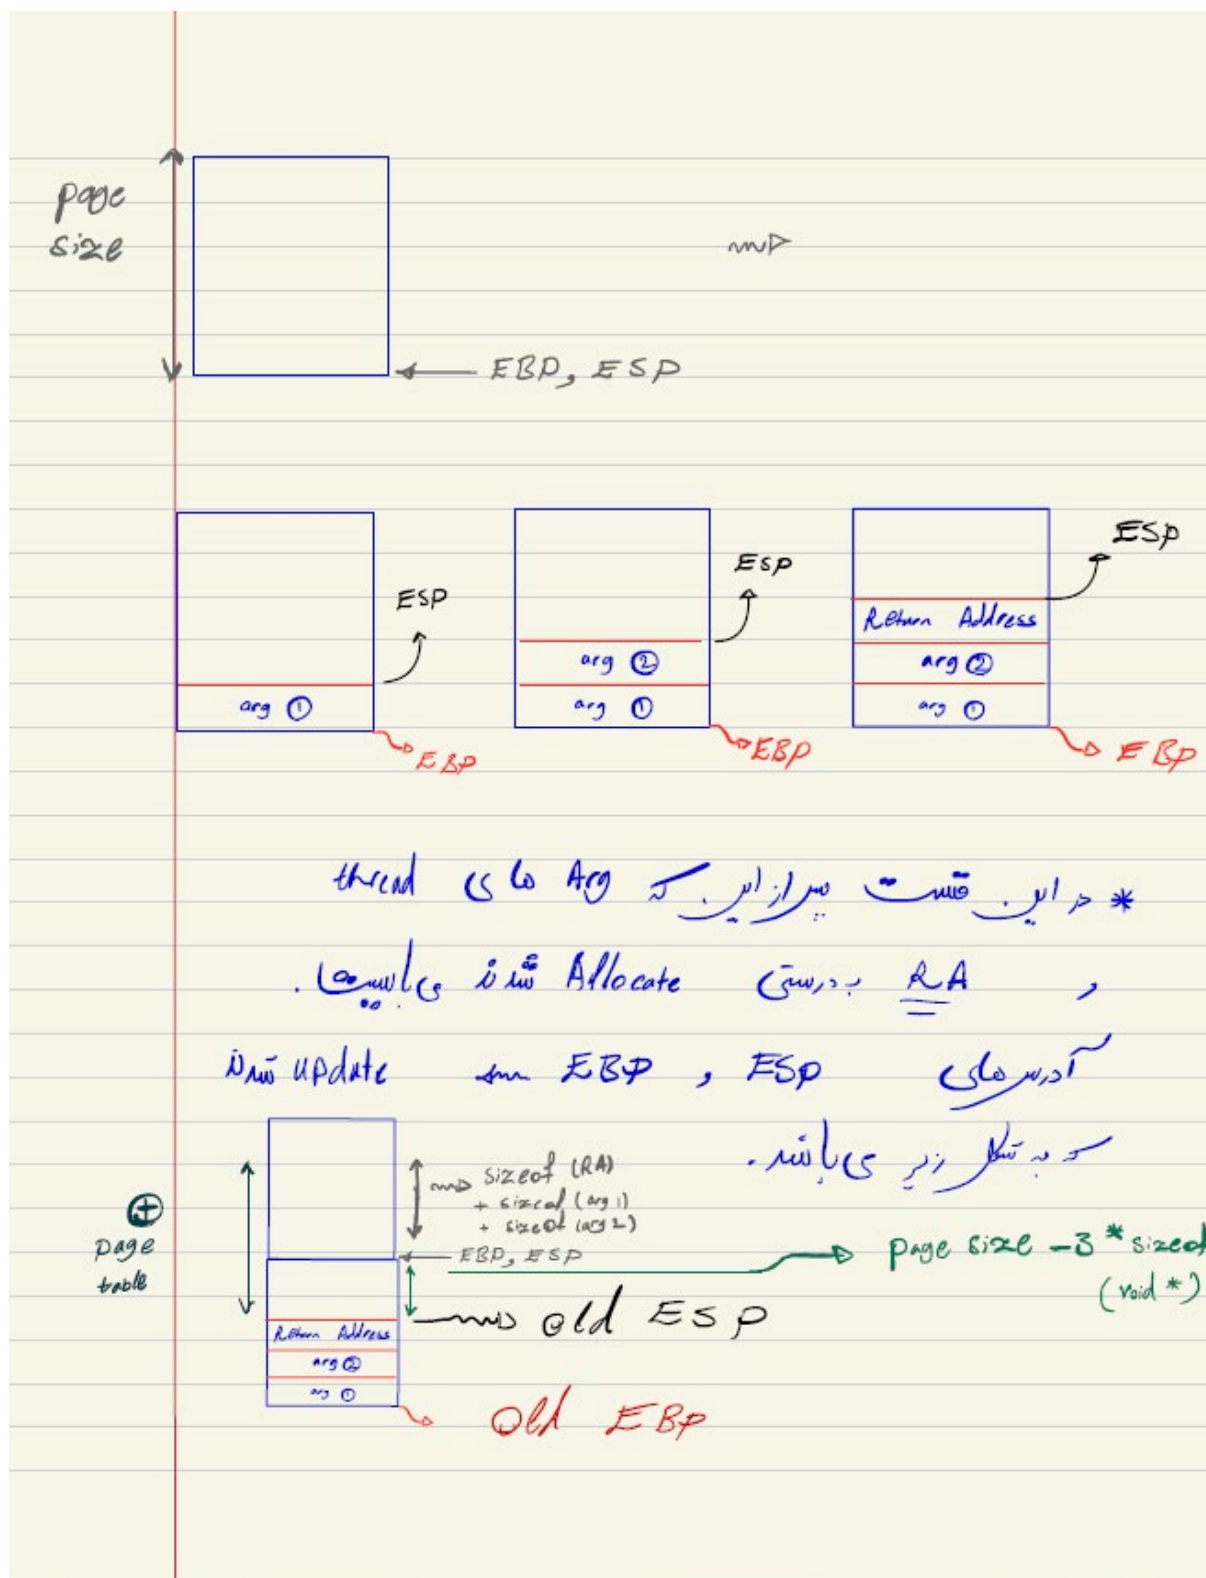 page
size
EBP, ESP
ESP
arg ①
EBP
ESP
arg ②
arg ①
EBP
ESP
Return Address
arg ②
arg ①
EBP
* در این قسمت پس از این که Arg های thread
و RA بدرستی Allocate شدند می‌بایست.
آدرس های ESP و EBP update شدند
که به شکل زیر می‌باشد.
sizeof (RA)
+ sizeof (arg 1)
+ sizeof (arg 2)
EBP, ESP
page size - 3 * sizeof
(void *)
+
page
table
old ESP
Return Address
arg ②
arg ①
Old EBP